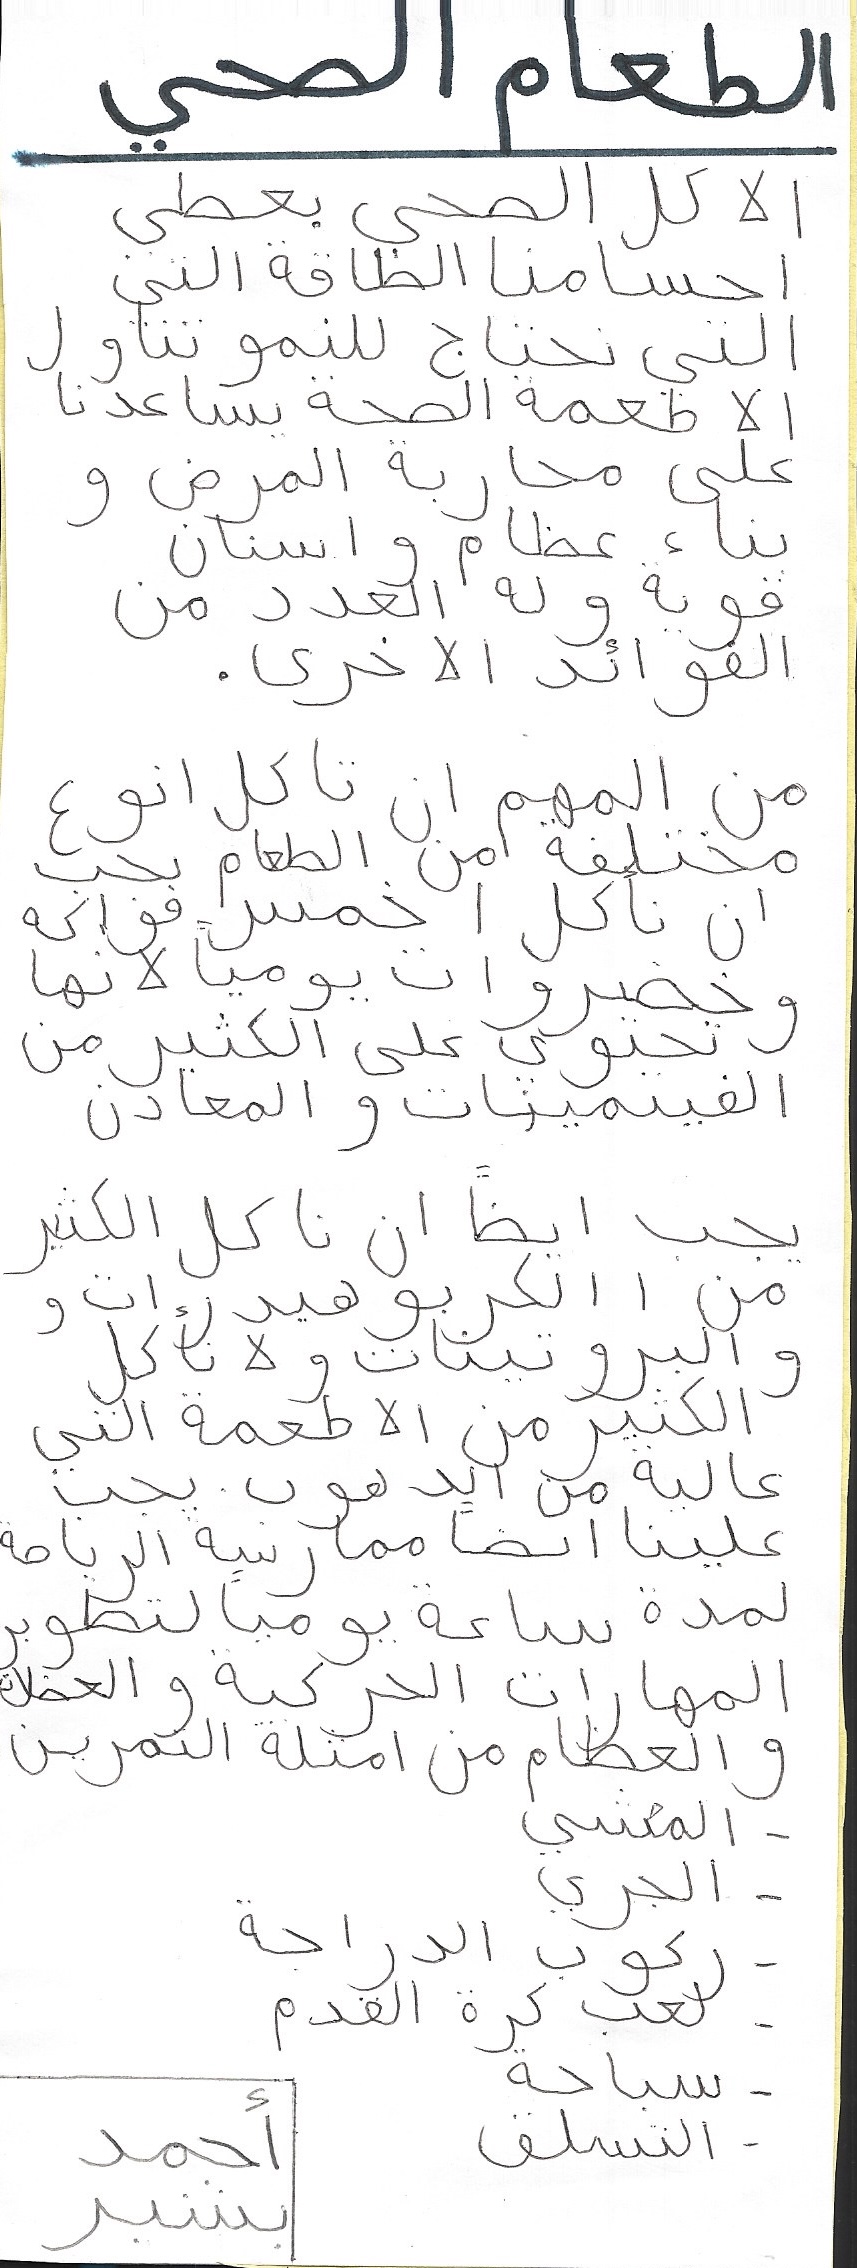 الطعام الصحي
الاكل الصحي يعطي
اجسامنا الطاقة التي
التي نحتاج للنمو تناول
الاطعمة الصحة يساعدنا
على محاربة المرض و
بناء عظام واسنان
قوية وله العدد من
الفوائد الاخرى.
من المهم ان تاكل انوع
مختلفة من الطعام يجب
ان نأكل ا خمس فواكه
وخضروات يومياً لانها
وتحتوي على الكثير من
الفيتمينات والمعادن
يجب ايضاً ان ناكل الكثير
من االكربوهيدرات و
والبروتينات ولا نأكل
الكثير من الاطعمة التي
عالية من الدهون. يجب
علينا ايضاً ممارسة الرياضة
لمدة ساعة يومياً لتطوير
المهارات الحركية والعضلات
والعظام من امثلة التمرين
- المشي
- الجري
- ركوب الدراجة
- لعب كرة القدم
- سباحة
- التسلق
أحمد
بشير